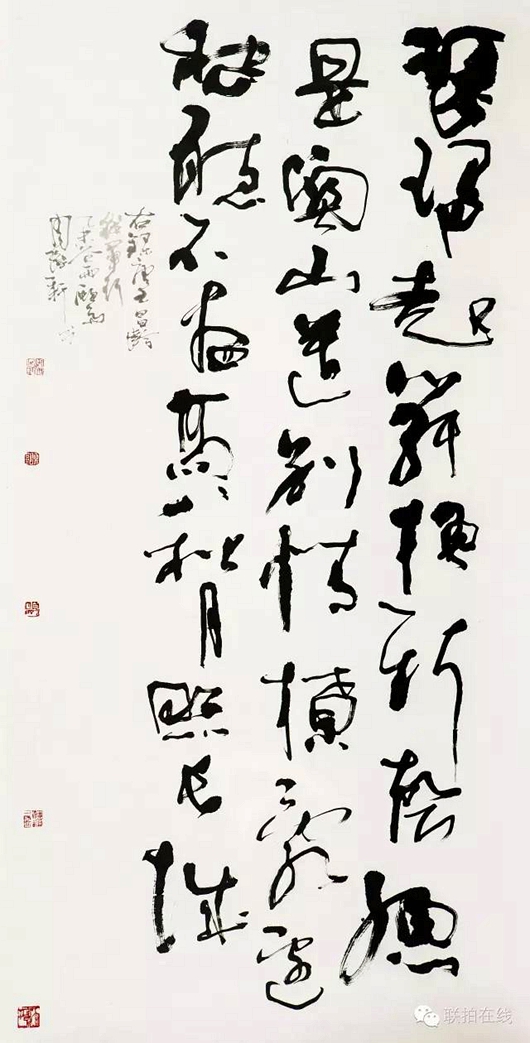 琵琶起舞換新聲總
是關山舊別情亂邊
愁聽不盡高高秋月照長城
右錄唐王昌齡
從軍行
乙未谷雨
联拍在线